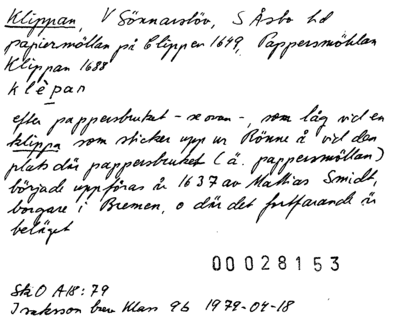 Klippan, V Sönnarslöv, S Åsbo hd
papiermöllan på Clippen 1649, Pappersmöhlan
Klippan 1688
klèpan
efter pappersbruket - se ovan -, som låg vid en
klippa som sticker upp ur Rönne å vid den
plats där pappersbruket (ä. pappersmöllan)
började uppföras år 1637 av Mathias Smidt,
borgare i Bremen, o där det fortfarande är
beläget
00028153
SkO A18:79
Isaksson brev Klass 9b 1979-04-18